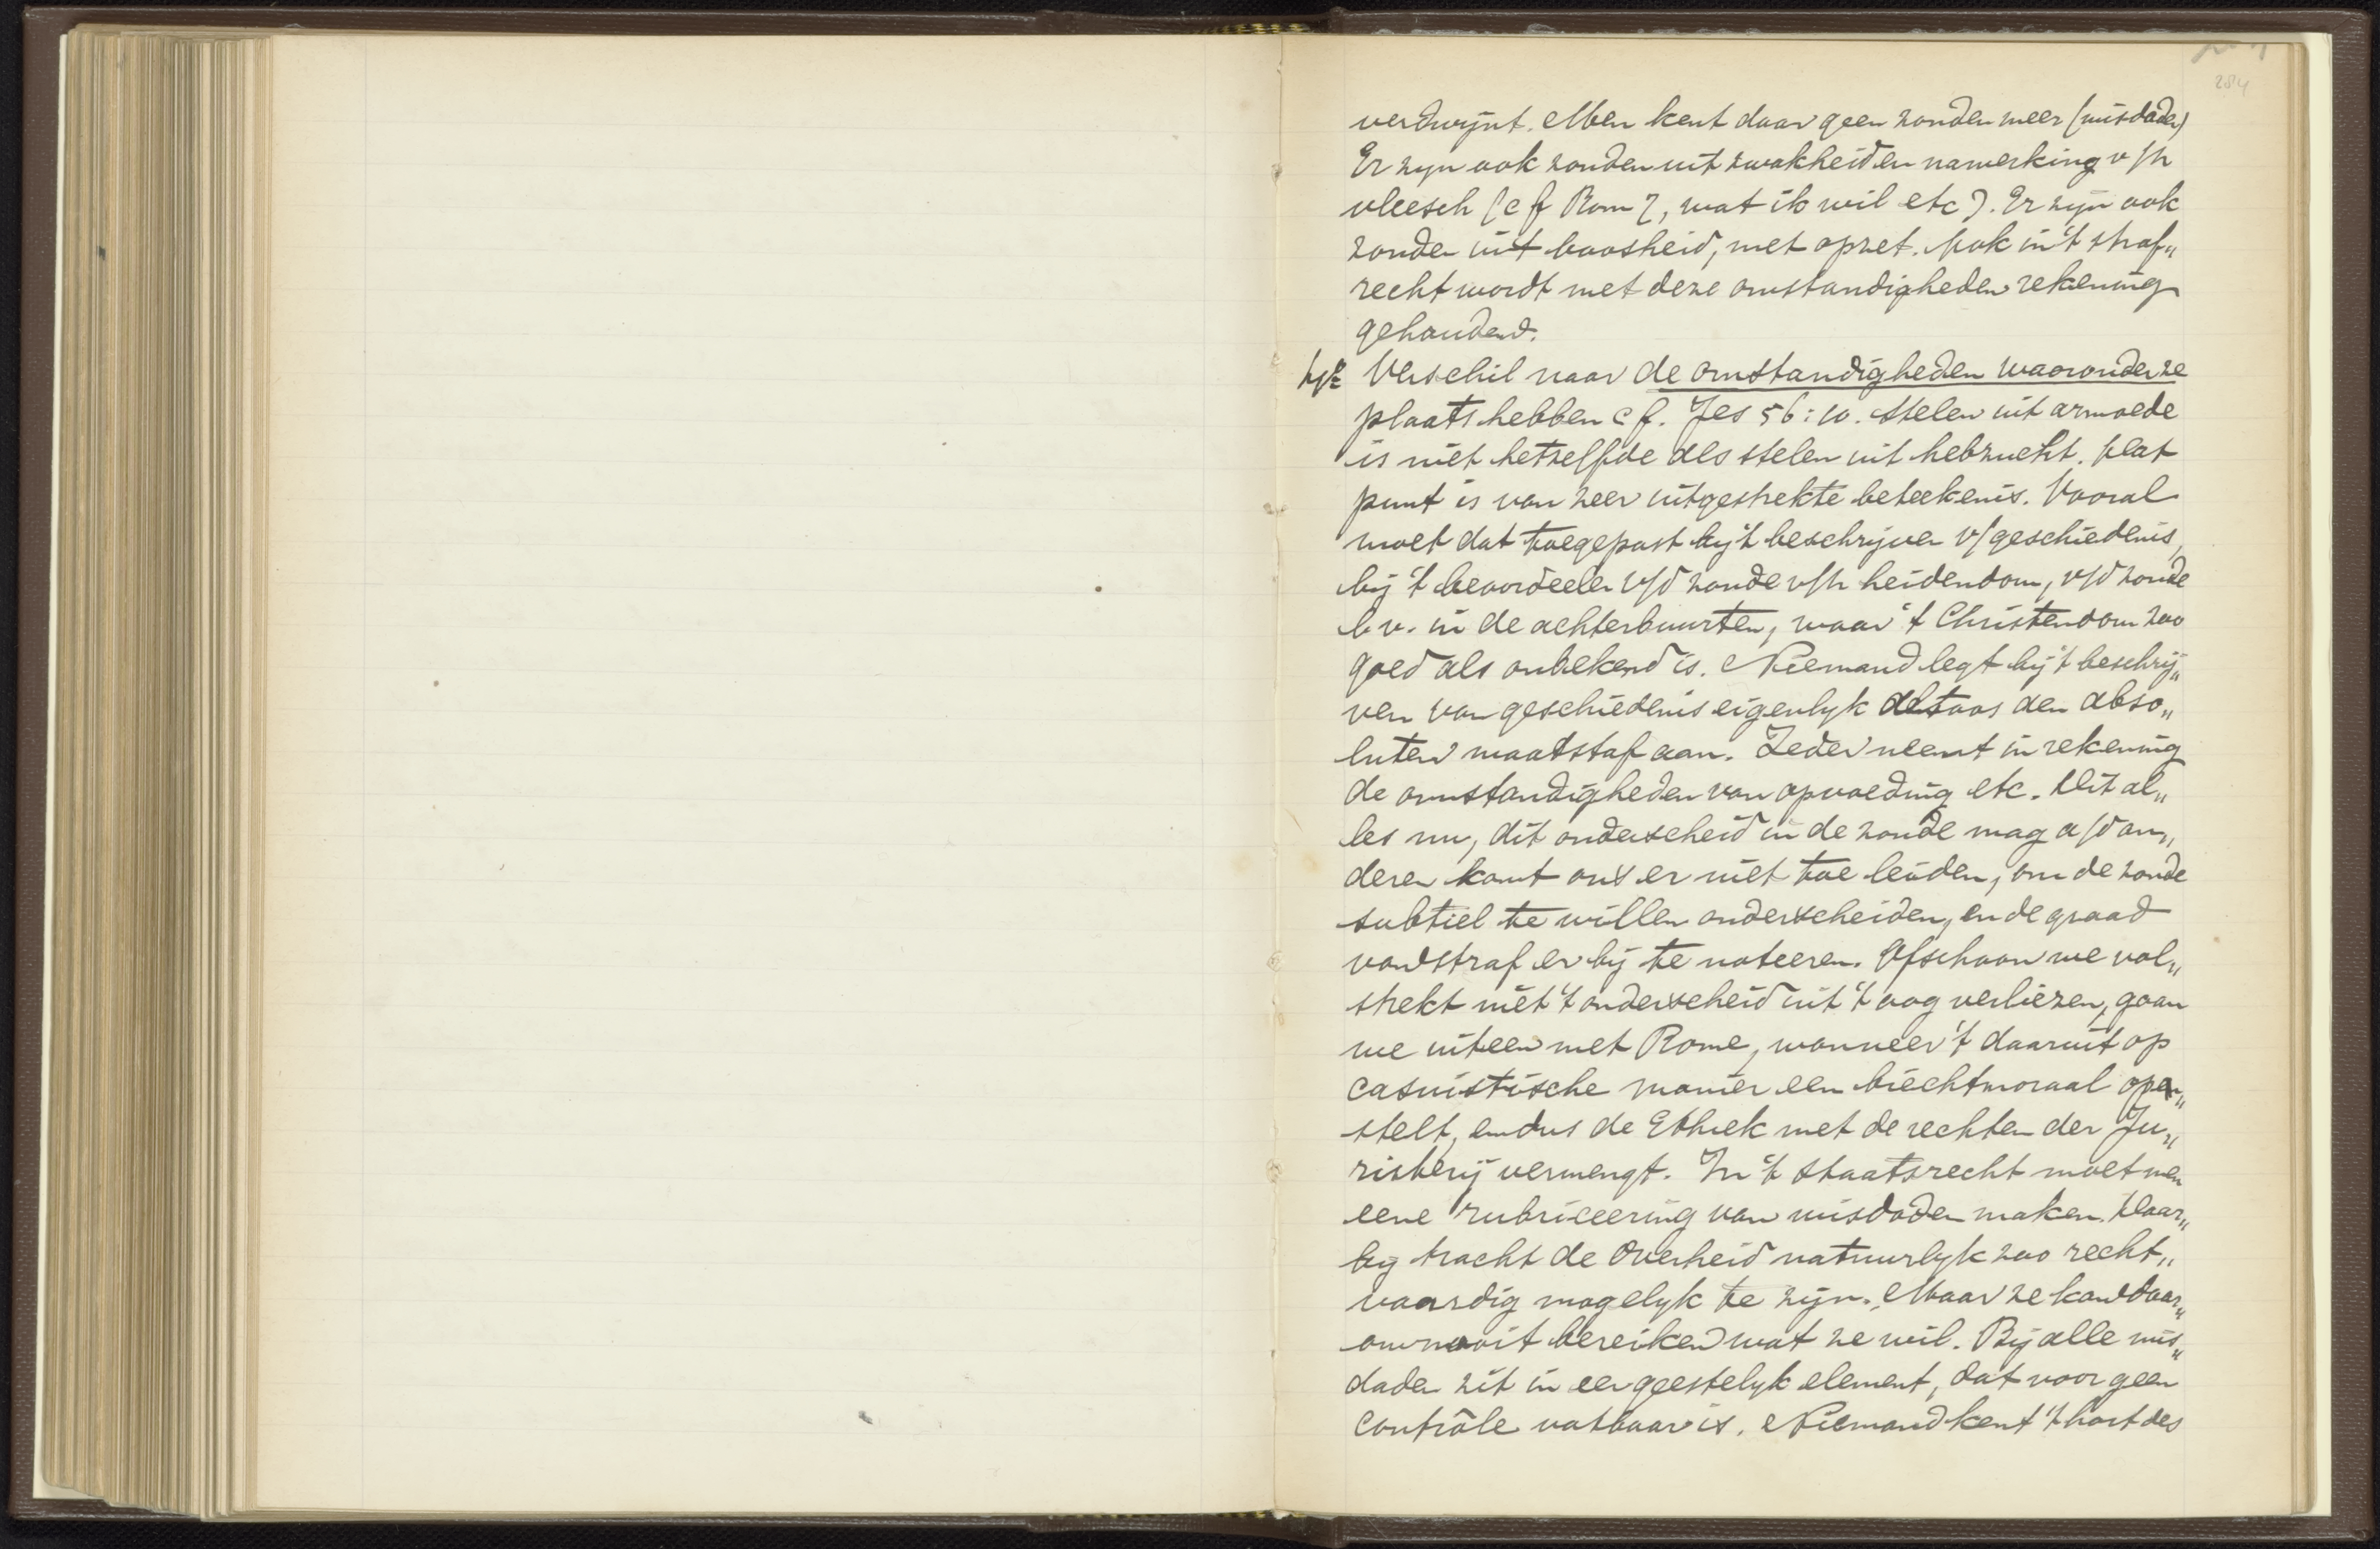 284
verdwijnt. Men kent daar geen zonden meer (misdaden)
Er zijn ook zonden uit zwakheid en nawerking v/h
vleesch (cf Rom 7, wat ik wil etc). Er zijn ook
zonden uit boosheid, met opzet. Ook in 't straf„
recht wordt met deze omstandigheden rekening
gehouden.
Verschil naar de omstandigheden waaronder ze
plaats hebben cf. Jes 56:10. Stelen uit armoede
is niet hetzelfde als stelen uit hebzucht. Dat
punt is van zeer uitgestrekte beteekenis. Vooral
moet dat toegepast bij 't beschrijven v/geschiedenis,
bij 't beoordeelen v/d zonde v/h heidendom, v/d zonde
bv. in de achterbuurten, waar 't Christendom zoo
goed als onbekend is. Niemand legt bij 't beschrij„
ven van geschiedenis eigenlijk den abso„
luten maatstaf aan. Ieder neemt in rekening
de omstandigheden van opvoeding etc. Dit al„
les nu, dit onderscheid in de zonde mag a/d an„
deren kant ons er niet toe leiden, om de zonde
subtiel te willen onderscheiden, en de graad
van straf er bij te noteeren. Ofschoon we vol„
strekt niet 't onderscheid uit 't oog verliezen, gaan
we uiteen met Rome, wanneer 't daaruit op
casuistische manier een biechtmoraal op
stelt, en dus de Ethiek met de rechten der Ju„
risterij vermengt. In 't staatsrecht moet men
eene rubriceering van misdaden maken. Daar„
bij tracht de Overheid natuurlijk zoo recht„
vaardig mogelyk te zijn. Maar ze kan daar„
om nooit bereiken wat ze wil. Bij alle mis„
daden zit in een geestelyk element, dat voor geen
contrôle vatbaar is. Niemand kent 't hart des